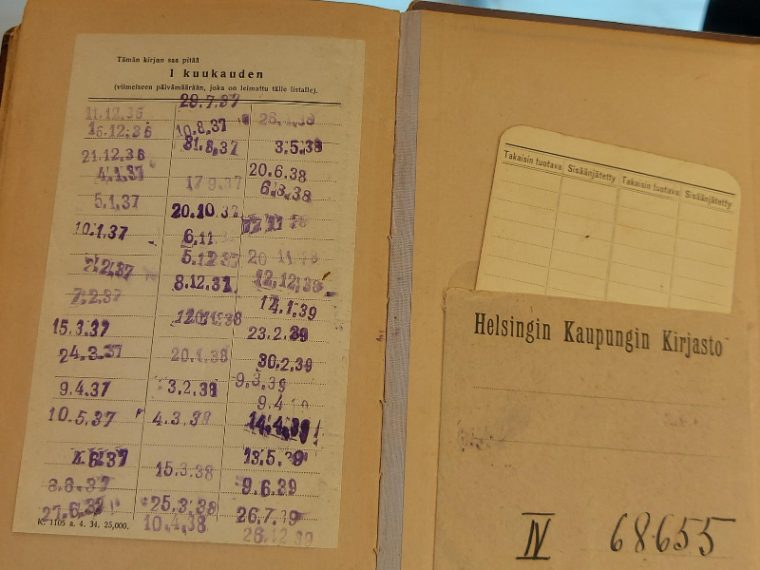 Tämän kirjan saa pitää
1 kuukauden
(viimeiseen päivämäärään, joka on leimattu tälle listalle).
11.12.36
16.12.36
21.12.36
4.1.37
5.1.37
10.1.37
7.2.37
15.3.37
24.3.37
9.4.37
10.5.37
8.8.37
27.6.37
K. 1105 a. 4. 34. 25,000.
29.7.37
10.8.37
31.8.37
17.9.37
20.10.37
6.11
5.12.37
8.12.37
20.1.38
3.2.38
4.3.38
15.3.38
25.3.38
10.4.38
3.5.38
20.6.38
6.8.38
12.12.38
4.1.39
23.2.39
30.2.39
9.3.39
14.4.39
13.5.39
9.6.39
26.7.39
28.12.39
Takaisin tuotava Sisäänjätetty Takaisin tuotava Sisäänjätetty
Helsingin Kaupungin Kirjasto
IV 68655